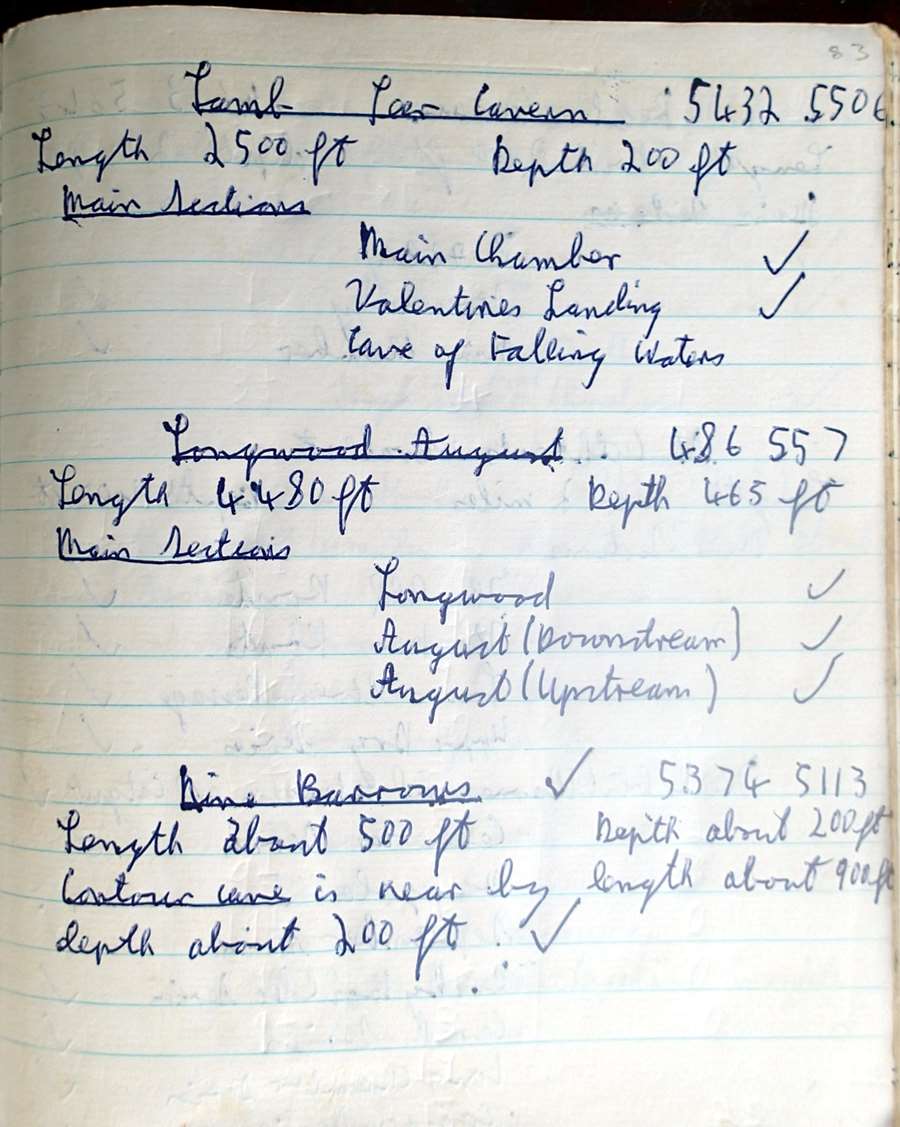 83
Lamb Leer Cavern 5432 5506
Length 2500 ft Depth 200 ft
Main Sections
Main Chamber ✓
Valentines Landing ✓
Cave of Falling Waters
Longwood August 486 557
Length 4480 ft Depth 465 ft
Main Sections
Longwood ✓
August (Downstream) ✓
August (Upstream) ✓
Nine Barrows ✓ 5374 5113
Length about 500 ft Depth about 200 ft
Contour cave is near by length about 900 ft
depth about 200 ft. ✓